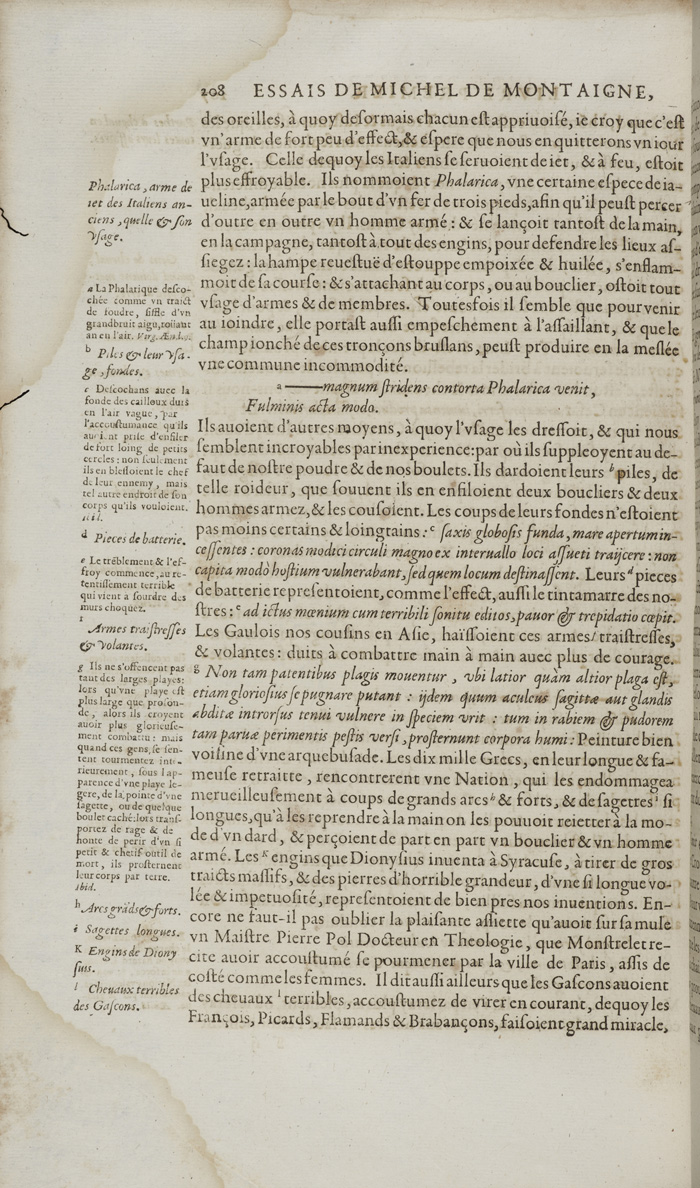 208 ESSAIS DE MICHEL DE MONTAIGNE,
des oreilles, à quoy desormais chacun est appriuoisé, ie croy que c'est
vn'arme de fort peu d'effect, & espere que nous en quitterons vn iour
l'vsage. Celle dequoy les Italiens se seruoient de iet, & à feu, estoit
plus effroyable. Ils nommoient Phalarica, vne certaine espece de ia-
ueline, armée par le bout d'vn fer de trois pieds, afin qu'il peust percer
d'outre en outre vn homme armé : & se lançoit tantost de la main,
en la campagne, tantost à tout des engins, pour defendre les lieux as-
siegez : la hampe reuestuë d'estouppe empoixée & huilée, s'enflam-
moit de sa course : & s'attachant au corps, ou au bouclier, ostoit tout
vsage d'armes & de membres. Toutesfois il semble que pour venir
au ioindre, elle portast aussi empeschement à l'assaillant, & que le
champ ionché de ces tronçons bruslans, peust produire en la meslée
vne commune incommodité.
a ——magnum stridens contorta Phalarica venit,
Fulminis acta modo.
Ils auoient d'autres moyens, à quoy l'vsage les dressoit, & qui nous
semblent incroyables par inexperience : par où ils suppleoyent au de-
faut de nostre poudre & de nos boulets. Ils dardoient leurs b piles, de
telle roideur, que souuent ils en enfiloient deux boucliers & deux
hommes armez, & les cousoient. Les coups de leurs fondes n'estoient
pas moins certains & loingtains : c saxis globosis funda, mare apertum in-
cessentes : coronas modici circuli magno ex interuallo loci assueti traijcere : non
capita modò hostium vulnerabant, sed quem locum destinassent. Leurs d pieces
de batterie representoient, comme l'effect, aussi le tintamarre des no-
stres : e ad ictus mœnium cum terribili sonitu editos, pauor & trepidatio cœpit.
Les Gaulois nos cousins en Asie, haïssoient ces armes f traistresses,
& volantes : duits à combattre main à main auec plus de courage.
g Non tam patentibus plagis mouentur, vbi latior quàm altior plaga est,
etiam gloriosius se pugnare putant : ijdem quum aculeus sagittæ aut glandis
abditæ introrsus tenui vulnere in speciem vrit : tum in rabiem & pudorem
tam paruæ perimentis pestis versi, prosternunt corpora humi : Peinture bien
voisine d'vne arquebusade. Les dix mille Grecs, en leur longue & fa-
meuse retraitte, rencontrerent vne Nation, qui les endommagea
merueilleusement à coups de grands arcs h & forts, & de sagettes i si
longues, qu'à les reprendre à la main on les pouuoit reietter à la mo-
de d'vn dard, & perçoient de part en part vn bouclier & vn homme
armé. Les K engins que Dionysius inuenta à Syracuse, à tirer de gros
traicts massifs, & des pierres d'horrible grandeur, d'vne si longue vo-
lée & impetuosité, representoient de bien pres nos inuentions. En-
core ne faut-il pas oublier la plaisante assiette qu'auoit sur sa mule
vn Maistre Pierre Pol Docteur en Theologie, que Monstrelet re-
cite auoir accoustumé se pourmener par la ville de Paris, assis de
costé comme les femmes. Il dit aussi ailleurs que les Gascons auoient
des cheuaux l terribles, accoustumez de virer en courant, dequoy les
François, Picards, Flamands & Brabançons, faisoient grand miracle,
Phalarica, arme de
iet des Italiens an-
ciens, quelle & son
vsage.
a La Phalarique desco-
chée comme vn traict
de foudre, siffle d'vn
grand bruit aigu, roüant
en l'air. Virg.
b Piles & leur vsa-
ge, fondes.
c Descochans auec la
fonde des cailloux durs
en l'air vague, par
l'accoustumance qu'ils
auoient prise d'enfiler
de fort loing de petits
cercles : non seulement
ils en blessoient le chef
de leur ennemy, mais
tel autre endroit de son
corps qu'ils vouloient.
d Pieces de batterie.
e Le tréblement & l'ef-
froy commence, au re-
tentissement terrible
qui vient a sourdre des
murs choquez.
f
Armes traistresses
& volantes.
g Ils ne s'offencent pas
tant des larges playes :
lors qu'vne playe est
plus large que profon-
de, alors ils croyent
auoir plus glorieuse-
ment combatu : mais
quand ces gens, se sen-
tent tourmentez inte-
rieurement, sous l'ap-
parence d'vne playe le-
gere, de la pointe d'vne
sagette, ou de quelque
boulet caché : lors trans-
portez de rage & de
honte de perir d'vn si
petit & chetif outil de
mort, ils prosternent
leur corps par terre.
Ibid.
h Arcs grāds & forts.
i Sagettes longues.
K Engins de Diony
sius.
l Cheuaux terribles
des Gascons.